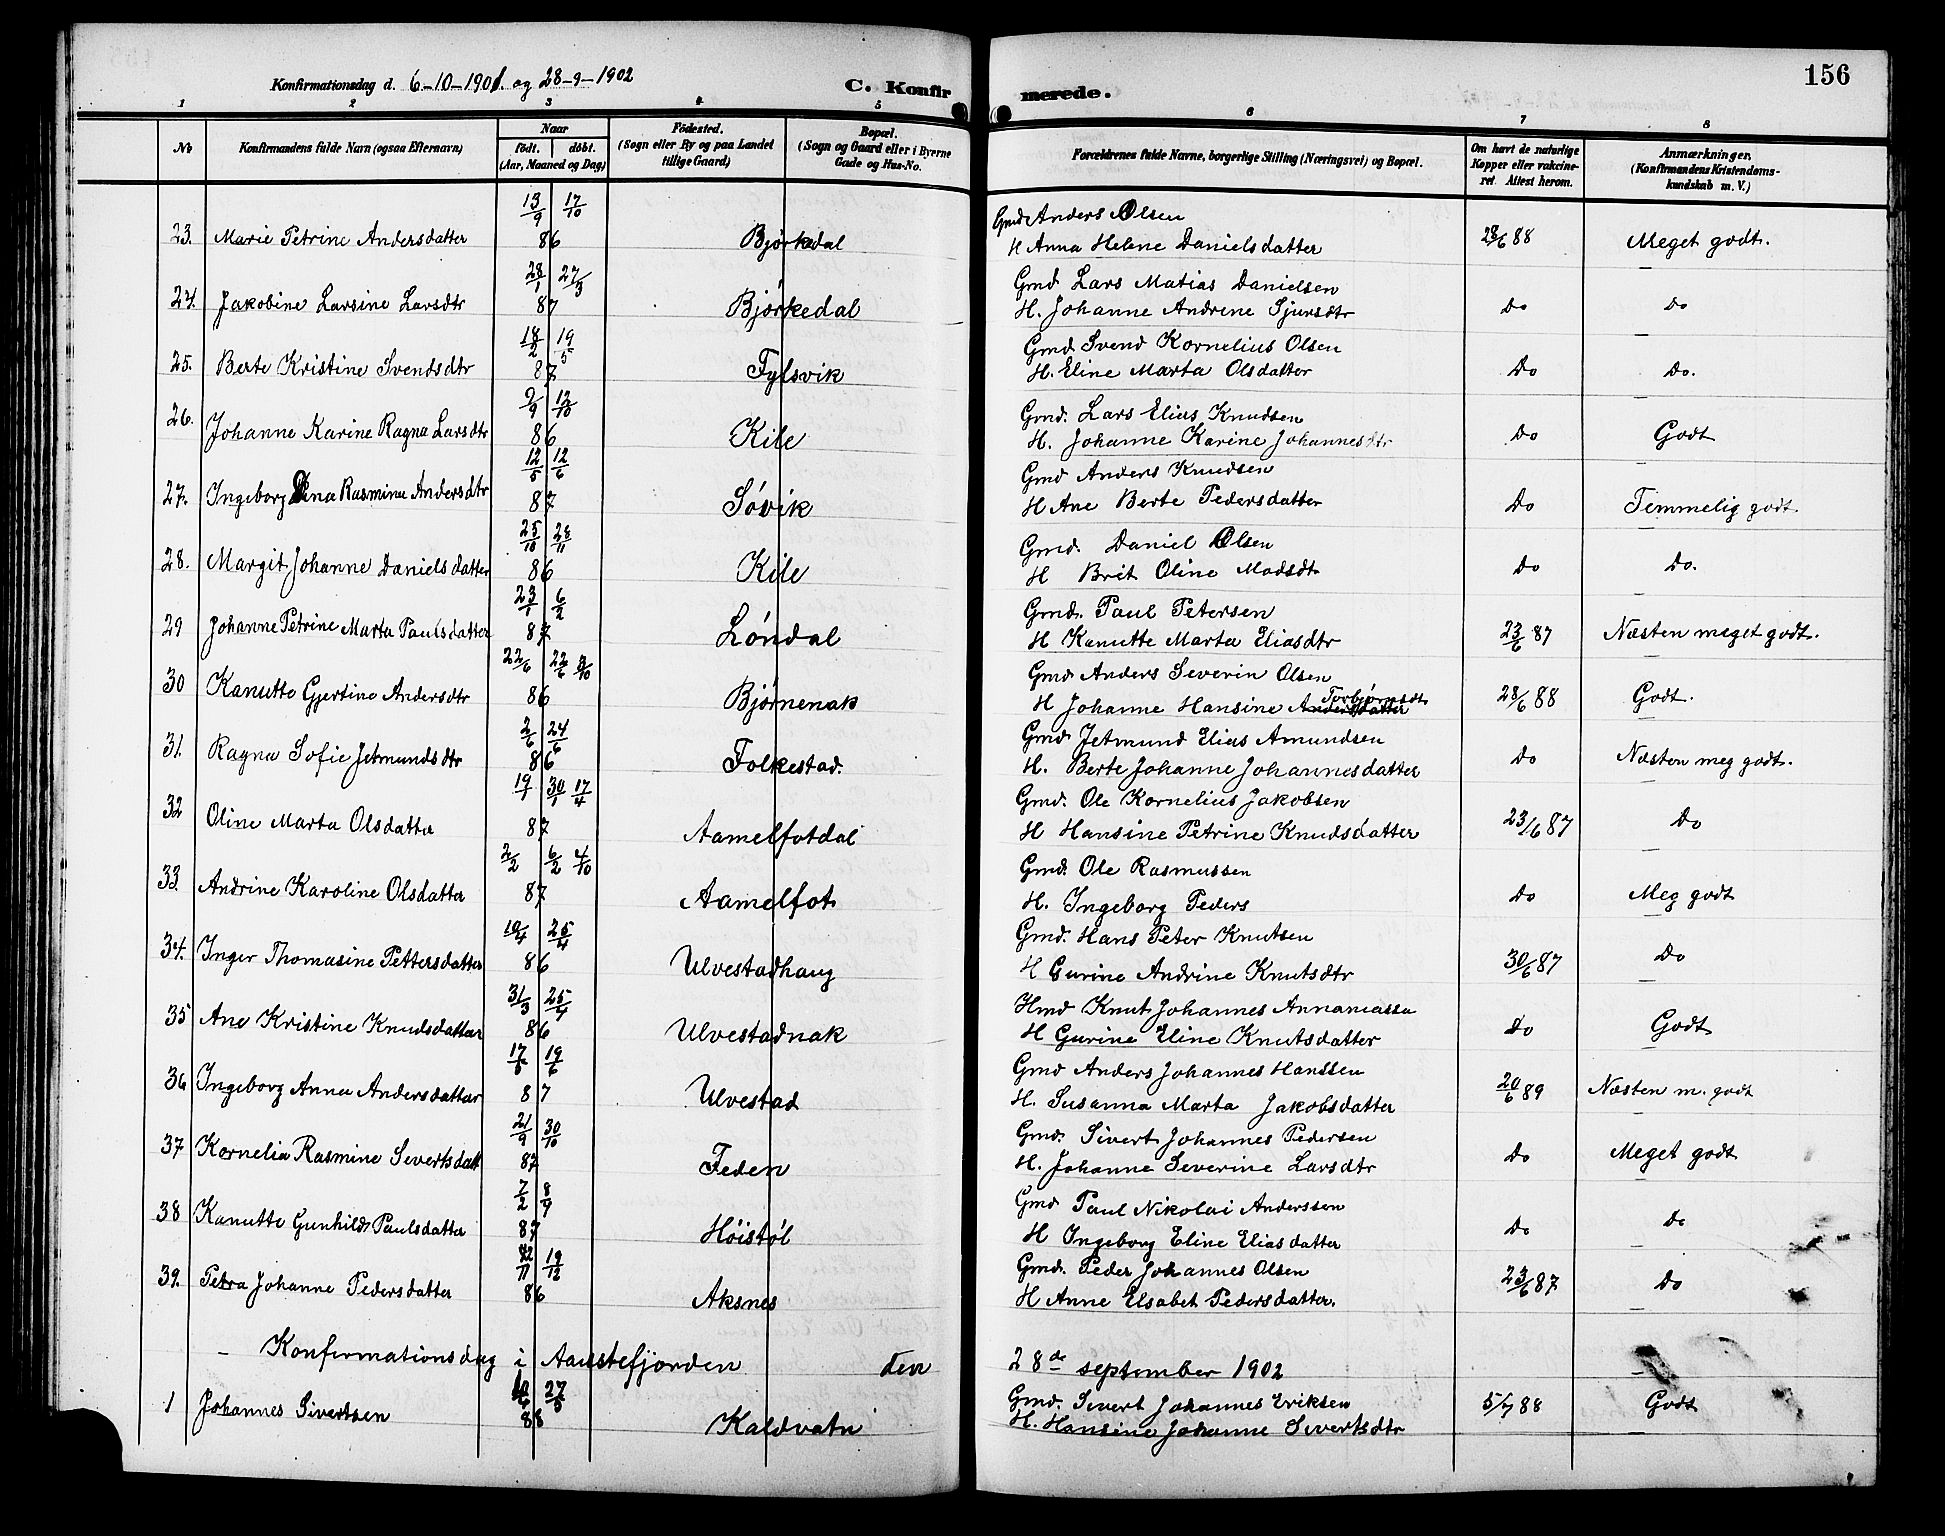 156
Konfirmationsdag d. 6-10-1901. og 28-9-1902 C. Konfirmerede.
1 2 3 4 5 6 7 8
No
Konfirmandens fulde Navn (ogsaa Efternavn)
Naar
födt. döbt.
(Aar, Maaned og Dag)
Födested.
(Sogn eller By og paa Landet
tillige Gaard)
Bopæl.
(Sogn og Gaard eller i Byerne
Gade og Hus-No.
Forældrenes fulde Navne, borgerlige Stilling (Næringsvei) og Bopæl.
Om havt de naturlige
Kopper eller vakcine-
ret. Attest herom.
Anmærkninger.
(Konfirmandens Kristendoms-
kundskab m. V.)
13/9 17/10 Gmd Anders Olsen
23. Marie Petrine Andersdatter 86 Bjørkedal H Anna Helene Danielsdatter 28/6 88 Meget godt.
28/1 27/3 Gmd Lars Matias Danielsen
24. Jakobine Larsine Larsdtr 87 Bjørkedal H. Johanne Andrine Sjursdtr Do Do
18/2 19/5 Gmd Svend Kornelius Olsen
25. Berte Kristine Svendsdtr 87 Fylsvik H. Eline Marta Olsdatter Do Do.
2/9 12/10 Gmd. Lars Elias Knudsen
26. Johanne Karine Ragna Larsdtr 86 Kile H. Johanne Karine Johannesdtr Do Godt
12/5 12/6 Gmd Anders Knudsen
27. Ingeborg Dina Rasmine Andersdtr 87 Søvik H Ane Berte Pedersdatter Do Temmelig godt.
25/10 28/11 Gmd. Daniel Olsen
28. Margit Johanne Danielsdatter 86 Kile H Brit Oline Madsdt Do Do.
23/1 6/2 Gmd. Paul Petersen
29 Johanne Petrine Marta Paulsdatter 87 Løndal H Kanutte Marta Eliasdtr 23/6 87 Næsten meget godt.
22/6 22/6 3/10 Gmd Anders Severin Olsen
30 Kanutte Gjertine Andersdtr 86 Bjørnenak H Johanne Hansine Andersdatter Torbjørnsdt 28/6 88 Godt.
2/6 24/6 Gmd Jetmund Elias Amundsen
31. Ragna Sofie Jetmundsdtr 86 Folkestad. H. Berte Johanne Johannesdatter Do Næsten meg godt.
19/1 30/1 17/4 Gmd. Ole Kornelius Jakobsen
32 Oline Marta Olsdatter 87 Aamelfotdal H Hansine Petrine Knudsdatter 23/6 87 Do
2/2 6/2 4/10 Gmd. Ole Rasmussen
33. Andrine Karoline Olsdatter 87 Aamelfot H. Ingeborg Peders Do Meg godt
19/4 25/4 Gmd. Hans Peter Knutsen
34. Inger Thomasine Pettersdatter 86 Ulvestadhaug H Gurine Andrine Knutsdtr 30/6 87 Do
31/3 25/4 Hmd Knut Johannes
35 Ane Kristine Knudsdatter 86 Ulvestadnak H Gurine Eline Knutsdatter Do Godt
17/5 19/6 Gmd Anders Johannes Hanssen
36 Ingeborg Anna Andersdatter 87 Ulvestad H. Susanna Marta Jakobsdatter 20/6 89 Næsten m. godt
21/9 30/10 Gmd. Sivert Johannes Pedersen
37 Kornelia Rasmine Sivertsdatt 87 Feden H. Johanne Severine Larsdtr Do Meget godt
7/2 8/9 Gmd Paul Nikolai Anderssen
38 Kanutte Gunhild Paulsdatter 87 Høistøl H Ingeborg Eline Eliasdatter Do Do
12/11 19/12 Gmd. Peder Johannes Olsen
39. Petra Johanne Pedersdatter 86 Aksnes H Anne Elsabet Pedersdatter. 23/6 87 Do
- Konfirmationsdag i Aaustefjorden den 28de september 1902
27/5 Gmd. Sivert Johannes Eriksen
1 Johannes Sivertsen 88 Kaldvatn H. Hansine Johanne Sivertsdtr 5/7 88 Godt